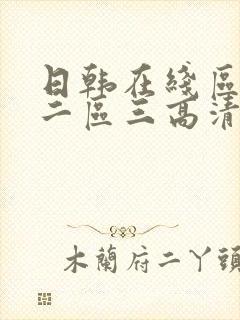 日韩在綫區
二區三高清
木蘭府二丫頭